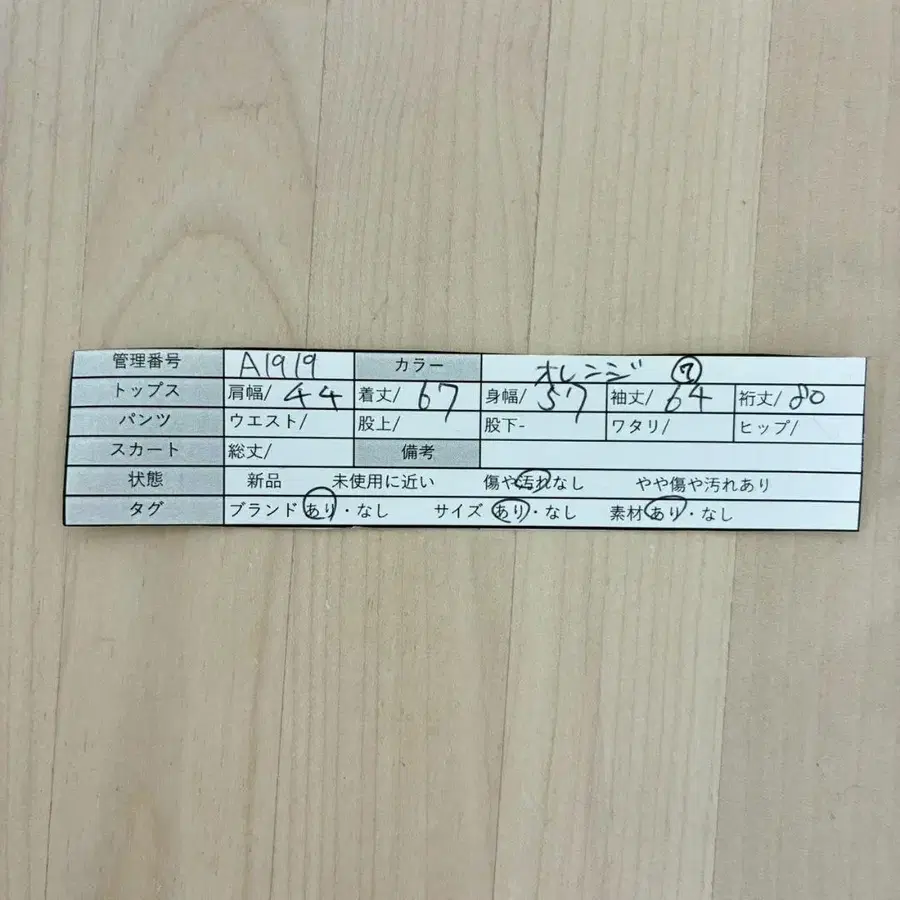 管理番号 A1919 カラー オレンジ ⑦
トップス 肩幅/ 44 着丈/ 67 身幅/ 57 袖丈/ 64 裄丈/ 80
パンツ ウエスト/ 股上/ 股下- ワタリ/ ヒップ/
スカート 総丈/ 備考
状態 新品 未使用に近い 傷や汚れなし やや傷や汚れあり
タグ ブランド あり・なし サイズ あり・なし 素材 あり・なし